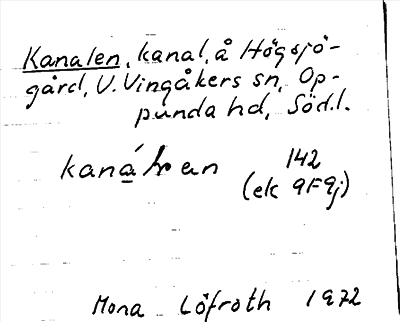 Kanalen, kanal, å Högsjö-
gård, V. Vingåkers sn, Op-
punda hd, Södl.
142
(ek 9F9j)
Mona Löfroth 1972